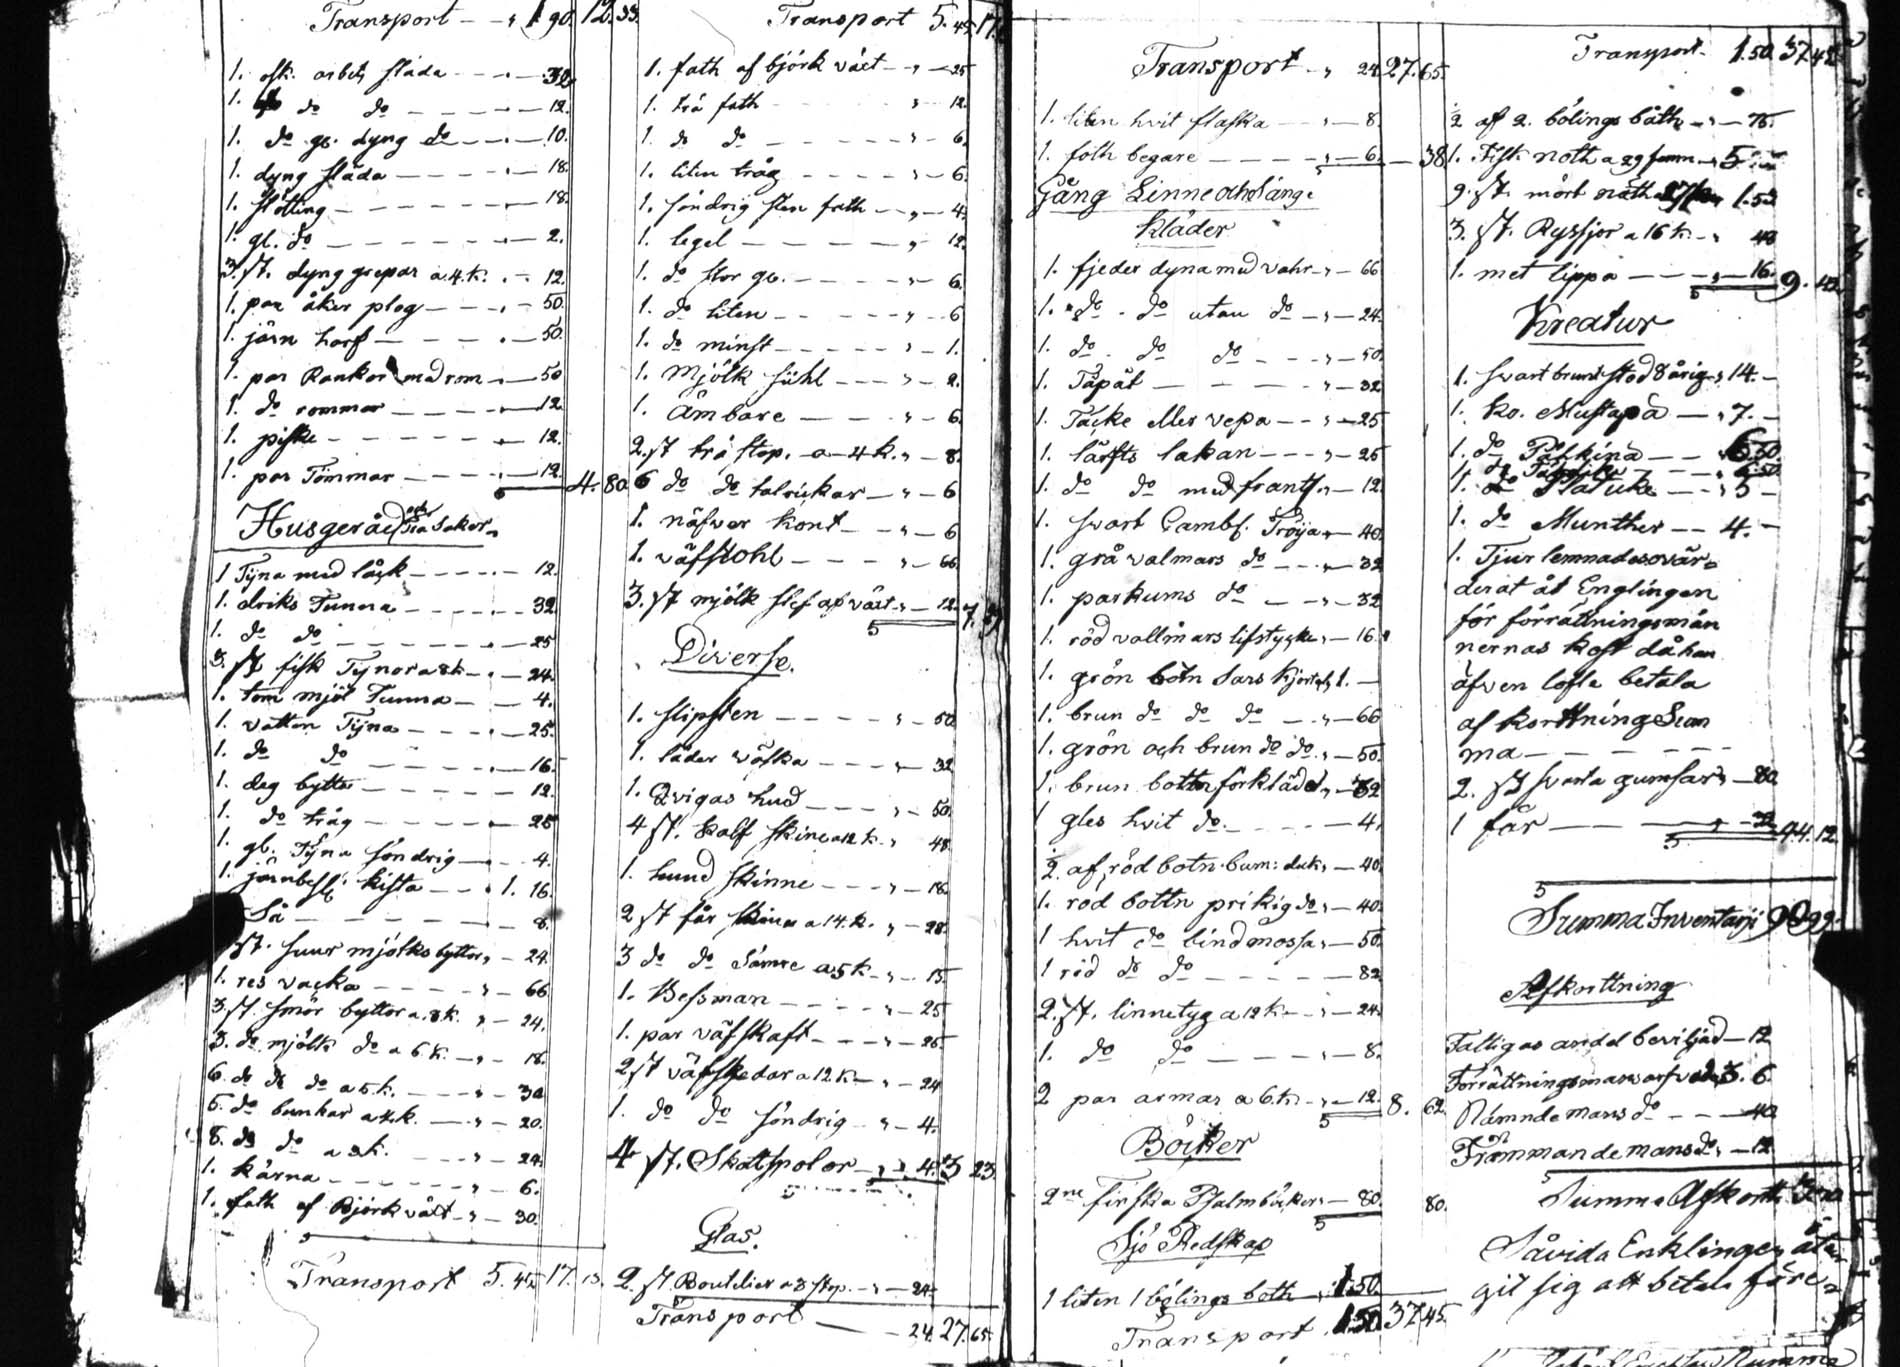 Transport - " 1 90. 12.33.
1. osk. arbets släda - - " - 32.
1. do do - - - - " - 12.
1. do gl. dyng do - - " - 10.
1. dyng släda - - - " - 18.
1. stötting - - - - " - 18.
1. gl. do - - - - " - 2.
3. st. dyng grepar a 4. k. " - 12.
1. par åker plog - - " - 50.
1. järn harf - - - " - 50.
1. par Rankor med rom " - 50
1. do rommar - - - " - 12.
1. piske - - - - " - 12.
1. par Tömmar - - - " - 12. 4. 80.
Husgeråd och Trä Saker.
1 Tÿna med låck - - - " - 12.
1. driks Tunna - - - " - 32.
1. do do - - - - " - 25
3. st fisk Tÿnor a 8 k - " - 24.
1. tom mjöl Tunna - - " - 4.
1. vatten Tÿna - - - " - 25.
1. do do - - - - " - 16.
1. deg bytta - - - - " - 12.
1. do tråg - - - - " - 25
1. gl. Tÿna söndrig - - " - 4.
1. järnbesl. kista - - " 1. 16.
Så - - - - - " - 8.
st. suur mjölks byttor " - 24.
1. res vacka - - - - " - 66
3. st. smör byttor a. 8 k. " - 24.
3. do mjölk do a 6. k. - " - 18.
6. do do do a 5 k. - - " - 30
5. do bunkar a 4 k. - - " - 20.
8. do do a 3 k. - - " - 24.
1. kärna - - - - " - 6.
1. fath af Björk växt - " - 30.
Transport 5. 45. 17. 13.
Transport 5. 45. 17.
1. fath af björk växt - " - 25
1. trä fath - - - " - 12.
1. do do - - - - " - 6.
1. liten tråg - - - " - 6.
1. söndrig sten fath - - " - 4.
1. legel - - - - " - 12.
1. do stor gl. - - - " - 6.
1. do liten - - - - " - 6
1. do minst - - - - " - 1.
1. Mjölk sihl - - - " - 2.
1. Ämbare - - - " - 6.
2. st trä stop. - a - 4 k. " - 8.
6 do do talrickar - " - 6
1. näfver kont - - " - 6
1. väfstohl - - - " - 66.
3. st mjölk slef af växt " - 12. 7. 29
Diverse.
1. slipsten - - - - " - 50.
1. läder väska - - - " - 32
1. Qvigas hud - - - " - 50.
4 st. kalf skin a 12 k. " 48.
1. hund skinne - - - " - 18.
2 st får skinn a 14. k. " - 28.
3 do do Sämre a 5 k - " - 15.
1. Bessman - - - - " - 25
1. par väfskaft - - - " - 25.
2 st väfskedar a 12 k - " - 24
1. do do söndrig - " - 4.
4 st. Skatspolor - " - 4. 3 23.
Glas.
2 st Boutelier a 3 stop. - " - 24.
Transport - 24. 27. 65.
Transport - " 24. 27. 65.
1. liten hvit flaska - - " - 8.
1. foth begare - - - " - 6. - 38
Gång Linne och Säng-
kläder
1. fjeder dyna med vahr - " - 66
1. do - do utan do - " - 24.
1. do do do - - " - 50.
1. Täpät - - - - " - 32
1. Täcke eller vepa - - " - 25
1. lärfts lakan - - - " - 25
1. do do med frants " - 12.
1. svart Cambs. Tröija " - 40.
1. grå valmars do - - " - 32
1. parkums do - - " - 32
1. röd vallmars lifstycke " - 16.
1. grön botn Sars kjortel " 1. -
1. brun do do do - " - 66
1. grön och brun do do " - 50.
1. brun bottn förkläde " - 32
1 gles hvit do. - - - " - 4.
1/2. af röd botn. bum: duk " - 40.
1. rod bottn prikig do " - 40.
1 hvit do bindmossa " - 50.
1 röd do do - - - - 82
2. st. linnetyg a 12 k - " - 24.
1. do do - - - " - 8.
2 par armar a 6. k - " - 12. 8. 62.
Böcker
2ne finska Psalmböcker " - 80. 80.
Sjö Redskap
1 liten 1 bölings båth " 1.50.
Transport 1.50. 37.45.
Transport - 1.50. 37.45.
1/2 af 2. bölings båth - " - 75.
1. Fisk noth a 29 famn - 5. -
9. st. mört näth a 17 k 1. 53
3. st. Ryssjor a 16 k - " 48
1. met lippo - - " - 16. 9. 42.
Kreatur
1. svart brunt stod 8 årig " 14. -
1. ko. Mustapä - " 7. -
1. do Päskinä - - 6.50.
1. do - - - 6.50
1. do Platuke - - " 5 -
1. do Munther - - 4. -
1. Tjur lemnades ovär-
derat åt Englingen
för förrättningsmän
nernas kost då han
äfven lofte betala
af korttning Sum
ma - - - - -
2. st svarta gumsar " - 80.
1 får - - - " - 32 44. 12.
Summa Inventarÿ 90 99.
Afkorttning
Fattigas andel beviljad - 12
Förrättningsmans arfvode 3. 6.
Nämndemans do - - - 40.
Främmandemans do " - 12
Summa Afkortt. 3.70
Såvida Enklingen åta-
git sig att betala före-